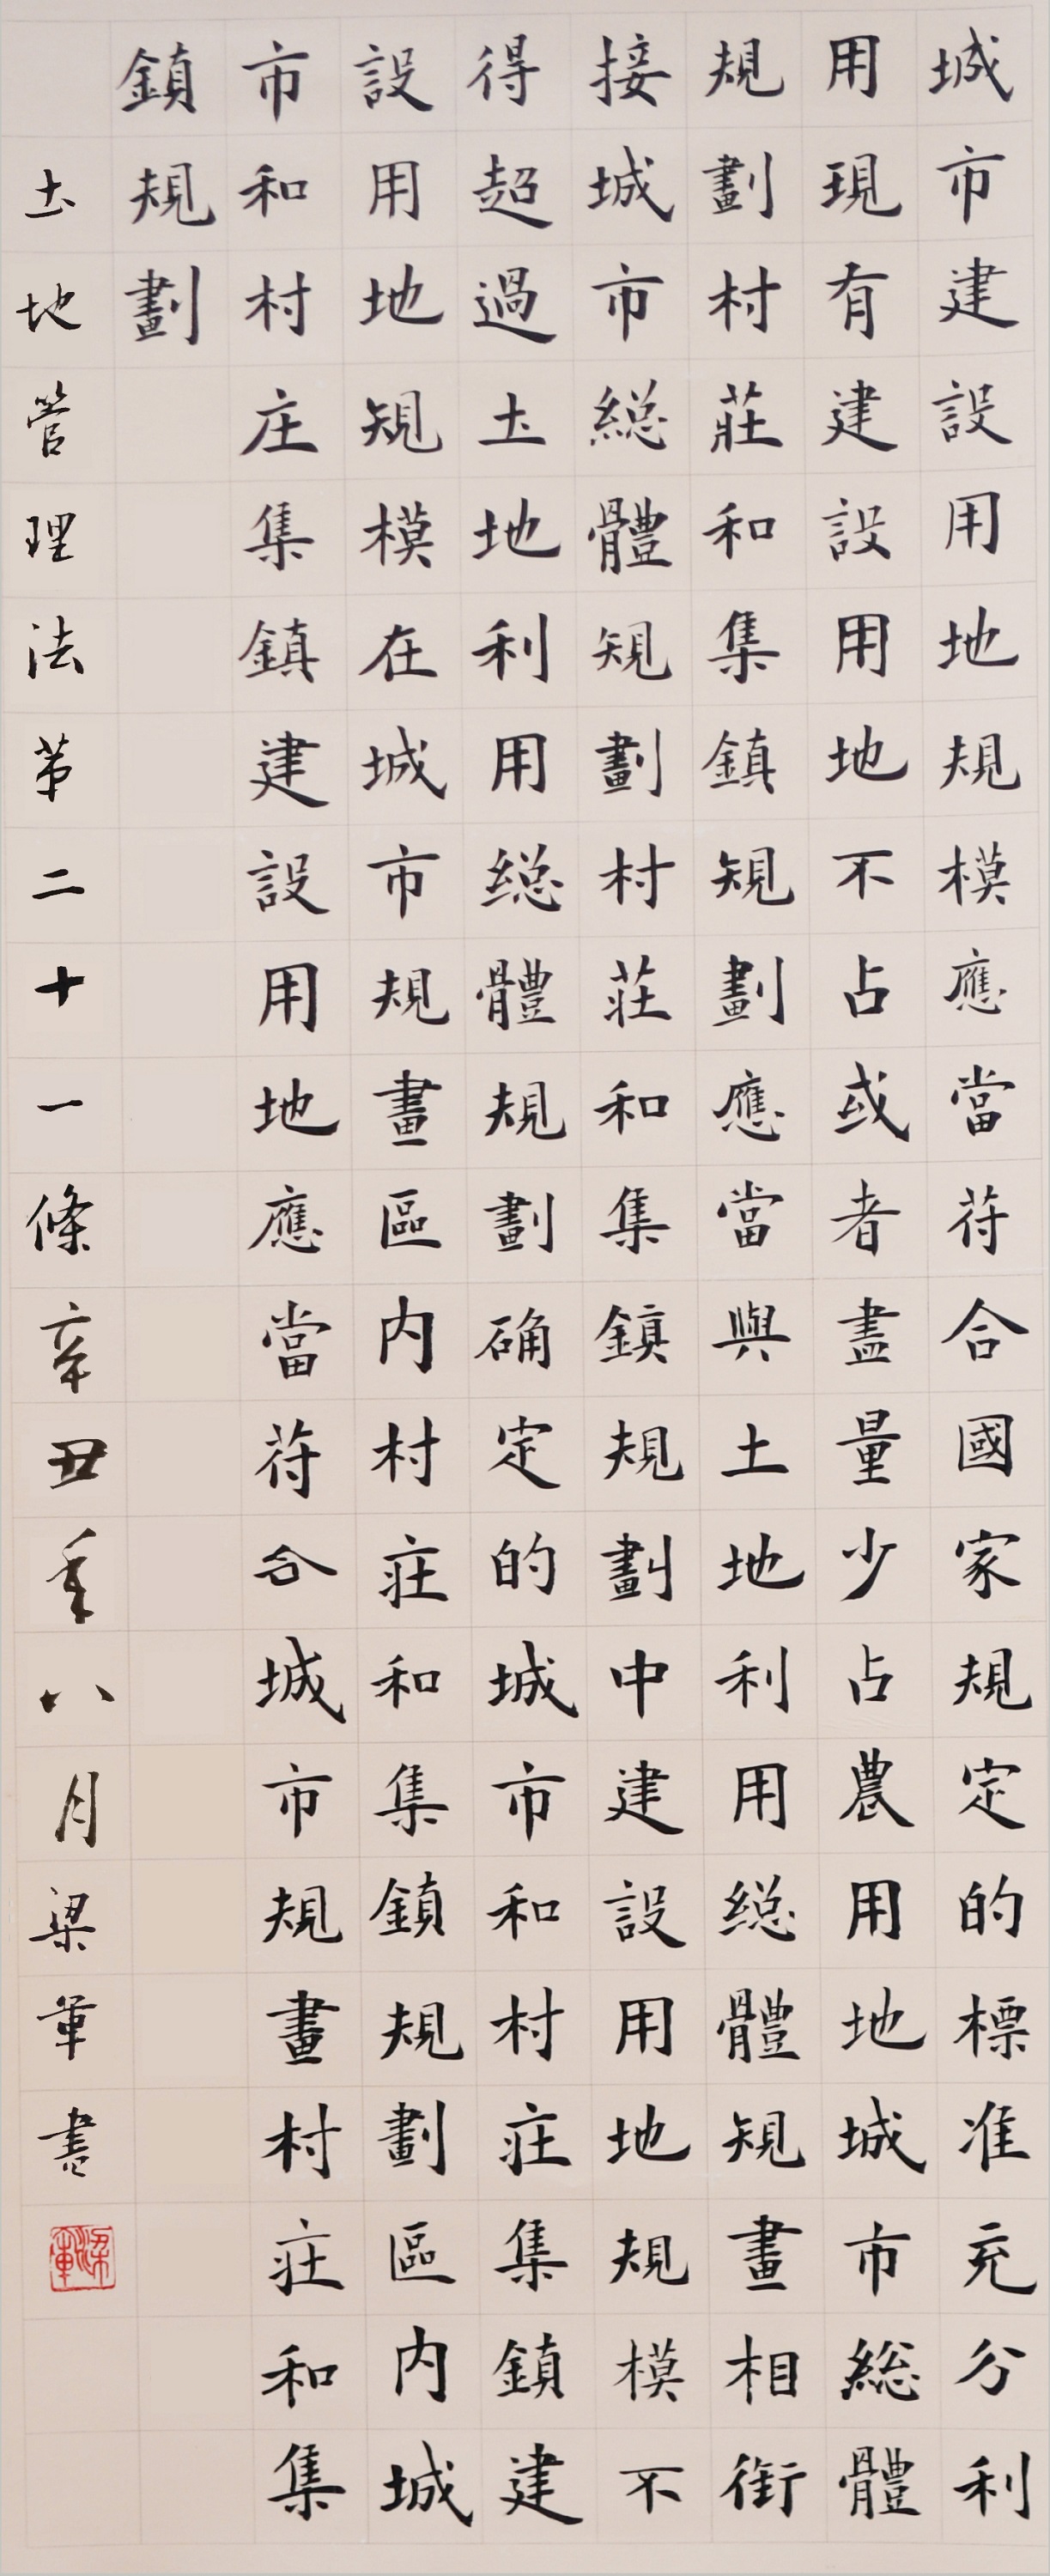 城市建設用地規模應當苻合國家規定的標准充分利
用現有建設用地不占或者盡量少占農用地城市総體
規劃村莊和集鎮規劃應當與土地利用総體規畫相銜
接城市総體規劃村莊和集鎮規劃中建設用地規模不
得超過土地利用総體規劃确定的城市和村荘集鎮建
設用地規模在城市規畫區内村荘和集鎮規劃區内城
市和村庄集鎮建設用地應當苻合城市規畫村荘和集
鎮規劃
土地管理法第二十一條辛丑年八月梁軍書
梁軍